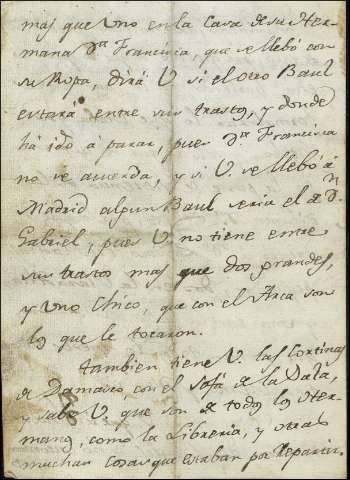 mas que uno en la Casa de su Her-
mana Dª Francisca, que se llebó con
su Ropa, dirá V. si el otro Baul
estará entre sus trastos, y donde
há ido á parar, pues Dª Francisca
no se acuerda, y si V. se llebó á
Madrid algun Baul seria el de Dn
Gabriel, pues V. no tiene entre
sus trastos mas que dos grandes,
y uno Chico, que con el Arca son
los que le tocaron.
Tambien tiene V. las Cortinas
de Damasco, con el Sofá de la Sala,
y sabe V. que son de todos los Her-
manos, como la Libreria, y otras
muchas cosas que estaban por Repartir.